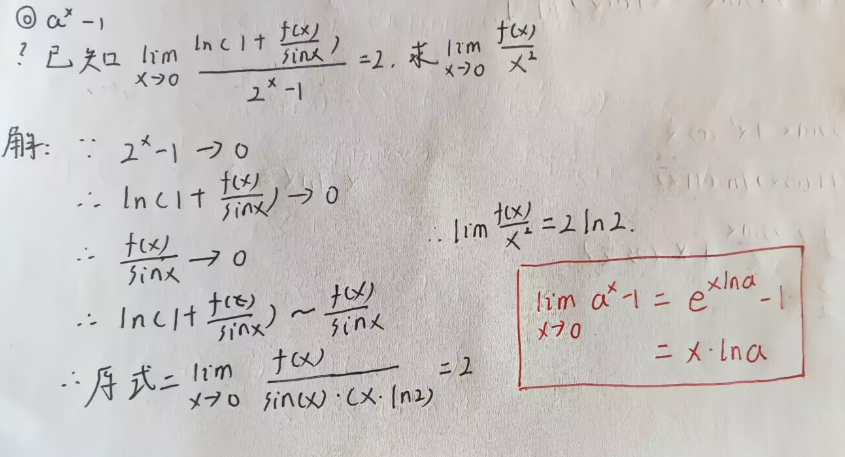 ◎ aˣ-1
? 已知 lim x→0 ln(1+ f(x)/sinx) / 2ˣ-1 =2. 求 lim x→0 f(x)/x²
解: ∵ 2ˣ-1→0
∴ ln(1+ f(x)/sinx)→0
∴ f(x)/sinx →0
∴ ln(1+ f(x)/sinx) ~ f(x)/sinx
∴原式= lim x→0 f(x) / sin(x)·(x·ln2) =2
∴ lim f(x)/x² =2ln2.
lim x→0 aˣ-1 = e^(xlna) -1
= x·lna